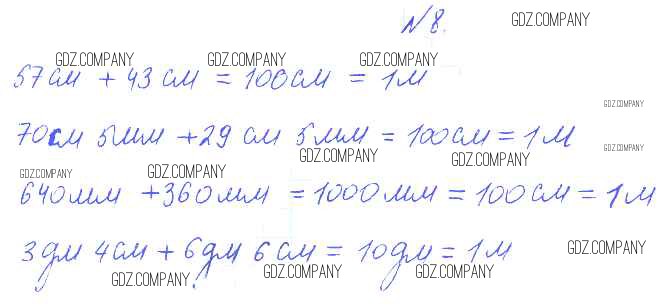 N 8. GDZ.COMPANY
GDZ.COMPANY GDZ.COMPANY GDZ.COMPANY
57 см + 43 см = 100 см = 1 м
GDZ.COMPANY
70 см 5 мм + 29 см 5 мм = 100 см = 1 м
GDZ.COMPANY GDZ.COMPANY GDZ.COMPANY
GDZ.COMPANY GDZ.COMPANY
640 мм + 360 мм = 1000 мм = 100 см = 1 м
3 дм 4 см + 6 дм 6 см = 10 дм = 1 м GDZ.COMPANY
GDZ.COMPANY GDZ.COMPANY GDZ.COMPANY